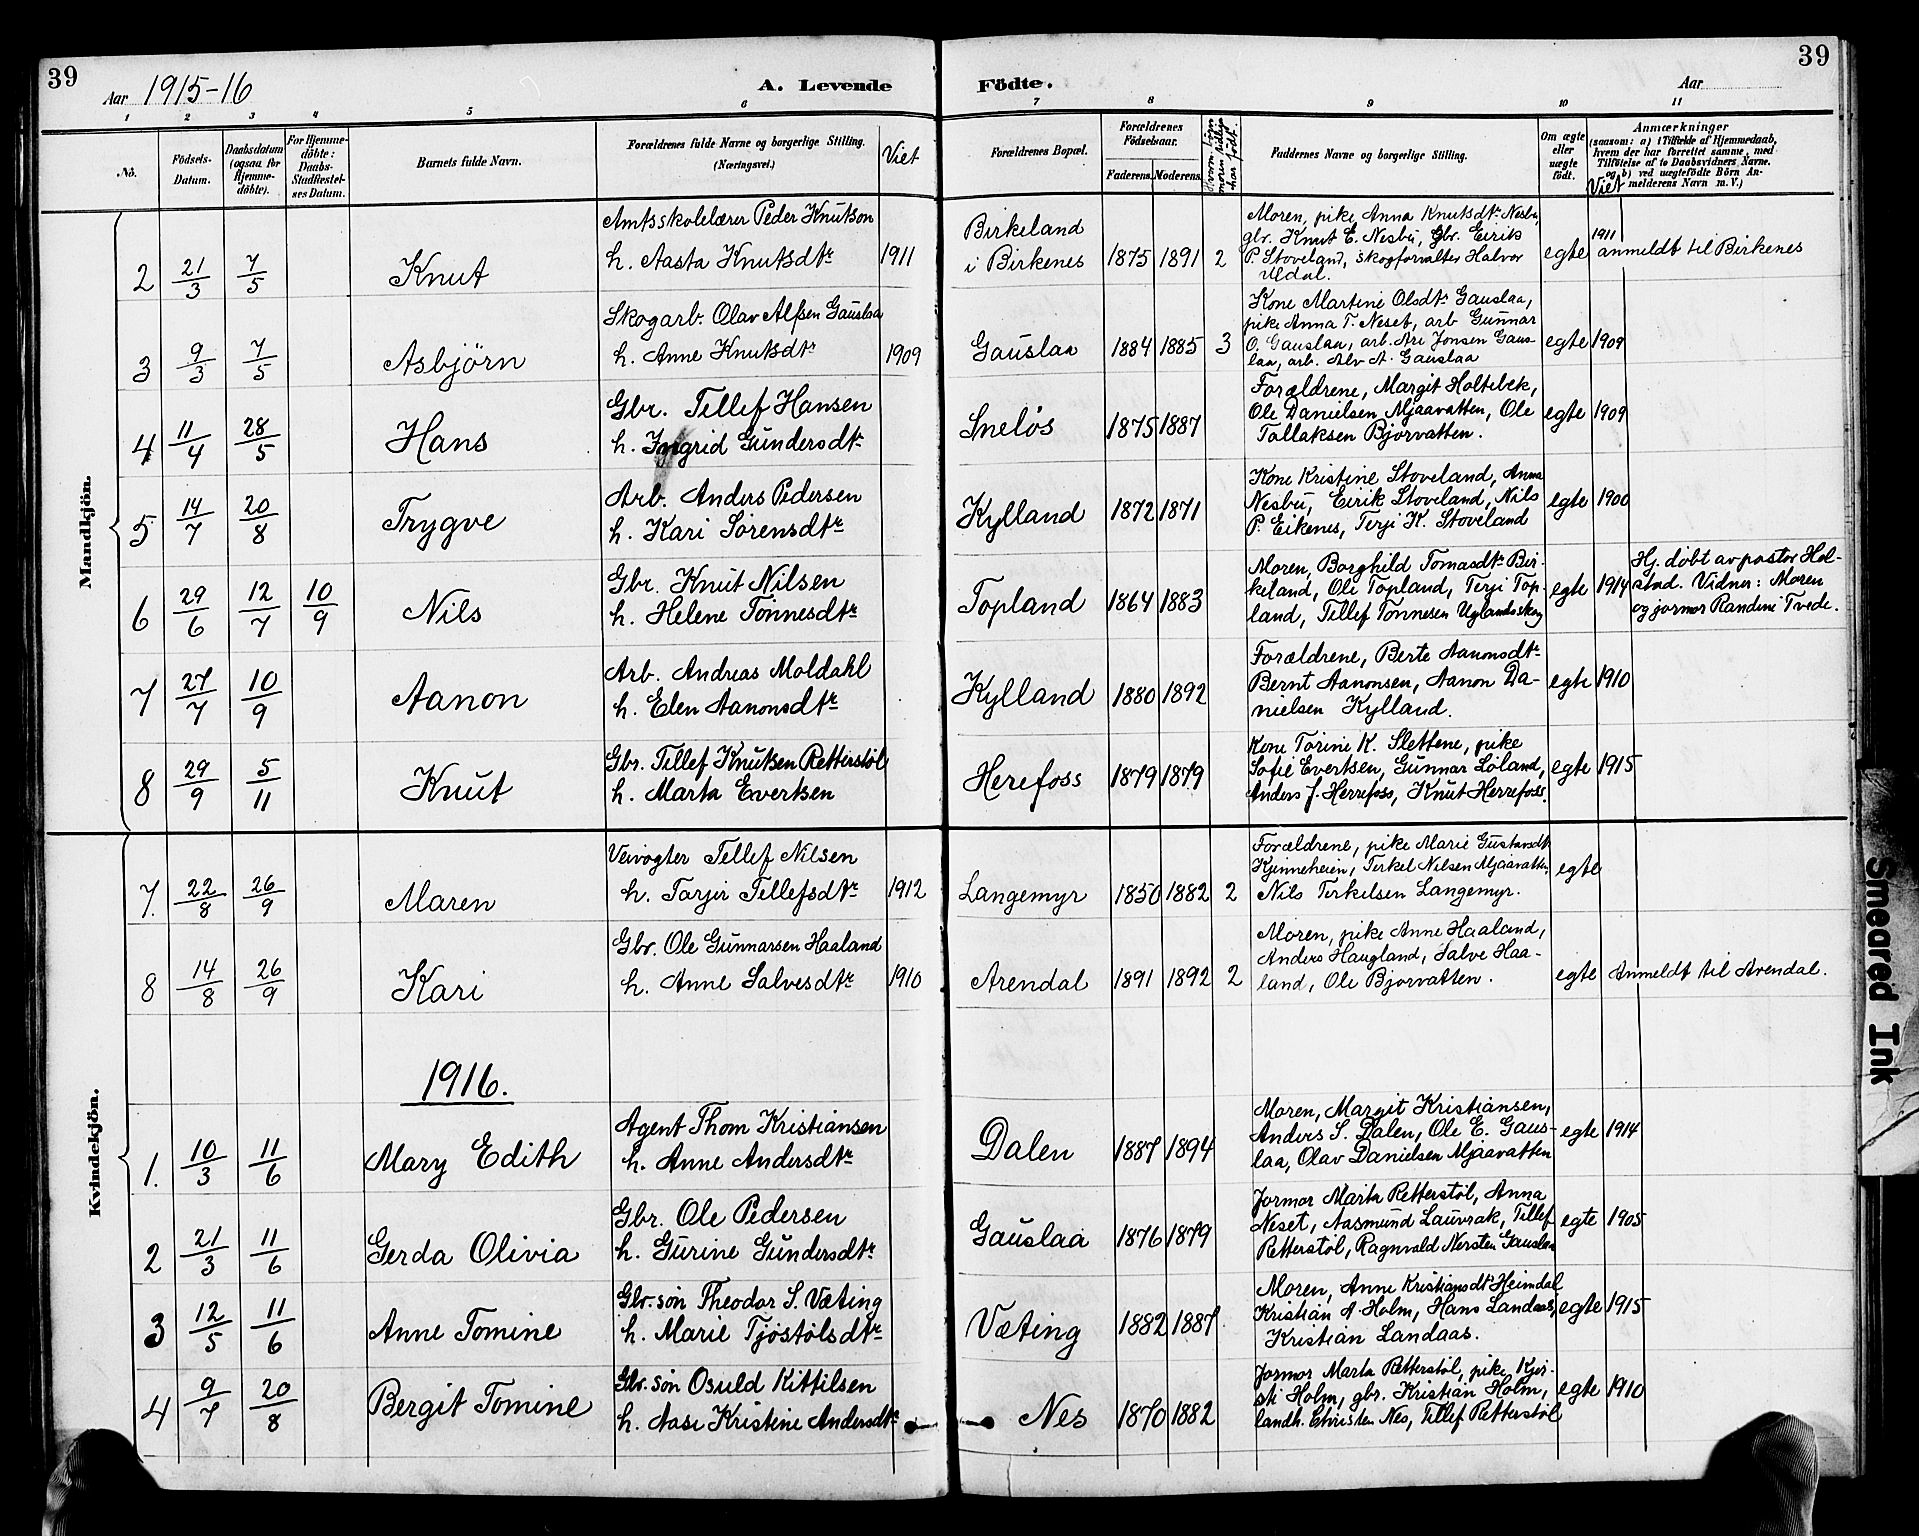 39
Aar 1915-16
A. Levende
Födte.
Aar
39
1 2 3 4 5 6 7 8 9 10 11
No.
Födsels-
Datum.
Daabsdatum
(ogsaa for
Hjemme-
döbte).
For Hjemme-
döbte:
Daabs-
Stadfæstel-
ses Datum.
Barnets fulde Navn.
Forældrenes fulde Navne og borgerlige Stilling.
(Næringsvei.)
Viet
Forældrenes Bopæl.
Forældrenes
Födselsaar.
Faderens. Moderens.
moren tidlige
har födt.
Faddernes Navne og borgerlige Stilling.
Om ægte
eller
uægte
födt.
Anmærkninger
(saasom: a) i Tilfælde af Hjemmedaab,
hvem der har forrettet samme, med
Tilföielse af to Daabsvidners Navne.
og b) ved uægtefödte Börn An-
melderens Navn m. V.)
Viet
Mandkjön.
2 21/3 7/5 Knut
Amtsskolelærer Peder Knutson
h. Aasta Knutsdtr 1911
Birkeland
i Birkenes 1875 1891 2
Moren, pike Anna Knutsdtr Nesbu,
gbr. Knut E. Nesbu, gbr. Eirik
P. Stoveland, skogforvalter Halvor
Uldal.
egte 1911 anmeldt til Birkenes
3 9/3 7/5 Asbjörn
Skogarb. Olav Alfsen Gauslaa
h. Anne Knutsdtr 1909
Gauslaa 1884 1885 3
Kone Martine Olsdtr Gauslaa,
pike Anna T. Neset, arb Gunnar
O. Gauslaa, arb. Ari Jonsen Gaus-
laa, arb. Alv A. Gauslaa
egte 1909
4 11/4 28/5 Hans
Gbr. Tellef Hansen
h. Ingrid Gundersdtr
Sneløs 1875 1887
Forældrene, Margit Holtebek,
Ole Danielsen Mjaavatten, Ole
Tallaksen Bjorvatten.
egte 1909
5 14/7 20/8 Trygve
Arb. Anders Pedersen
h. Kari Sørensdtr
Kylland 1872 1871
Kone Kristine Stoveland, Anna
Nesbu, Eirik Stoveland, Nils
P. Eikenes, Terji K. Stoveland
egte 1900
6 29/6 12/7 10/9 Nils
Gbr. Knut Nilsen
h. Helene Tønnesdtr
Topland 1864 1883
Moren, Borghild Tomasdtr Bir-
keland, Ole Topland, Terji Top-
land, Tellef Tønnesen Uglandsskog
egte 1914
Hj. døbt av pastor Hol-
stad. Vidner: Moren
og jormor Randine Tvede.
7 27/7 10/9 Aanon
Arb. Andreas Moldahl
h. Elen Aanonsdtr
Kylland 1880 1892
Forældrene, Berte Aanonsdtr
Bernt Aanonsen, Aanon Da-
nielsen Kylland.
egte 1910
8 29/9 5/11 Knut
Gbr. Tellef Knutsen Retterstøl
h. Marta Evertsen
Herefoss 1879 1879
Kone Torine K. Slettene, pike
Sofie Evertsen, Gunnar Løland,
Anders J. Herrefoss, Knut Herrefoss.
egte 1915
Kvindekjön.
7. 22/8 26/9 Maren
Veivogter Tellef Nilsen
h. Tarjer Tellefsdtr 1912
Langemyr 1850 1882 2
Forældrene, pike Marie Gustavsdtr
Kjinneheien, Terkel Nilsen Mjaavatten,
Nils Terkelsen Langemyr.
egte
8 14/8 26/9 Kari
Gbr. Ole Gunnarsen Haaland
h. Anne Salvesdtr 1910
Arendal 1891 1892 2
Moren, pike Anne Haaland,
Anders Haugland, Salve Haa-
land, Ole Bjorvatten.
egte Anmeldt til Arendal.
1916.
1. 10/3 11/6 Mary Edith
Agent Thom Kristiansen
h. Anne Andersdtr
Dalen 1887 1894
Moren, Margit Kristiansen,
Anders S. Dalen, Ole E. Gaus-
laa, Olav Danielsen Mjaavatten
egte 1914
2 21/3 11/6 Gerda Olivia
Gbr. Ole Pedersen
h. Gurine Gundersdtr
Gauslaa 1876 1879
Jormor Marta Retterstøl, Anna
Neset, Aasmund Lauvrak, Tellef
Retterstøl, Ragnvald Nersten Gauslaa
egte 1905
3 12/5 11/6 Anne Tomine
Gbr.søn Theodor S. Væting
h. Marie Tjøstølsdtr
Væting 1882 1887
Moren, Anne Kristiansdtr Heimdal
Kristian A. Holm, Hans Landaas,
Kristian Landaas.
egte 1915
4 9/7 20/8 Bergit Tomine
Gbr.søn Osuld Kittilsen
h. Aase Kristine Andersdtr
Nes 1870 1882
Jormor Marta Retterstøl, pike Kjer-
sti Holm, gbr. Kristian Holm,
landh. Christen Nes, Tellef Retterstøl
egte 1910
Smeared Ink